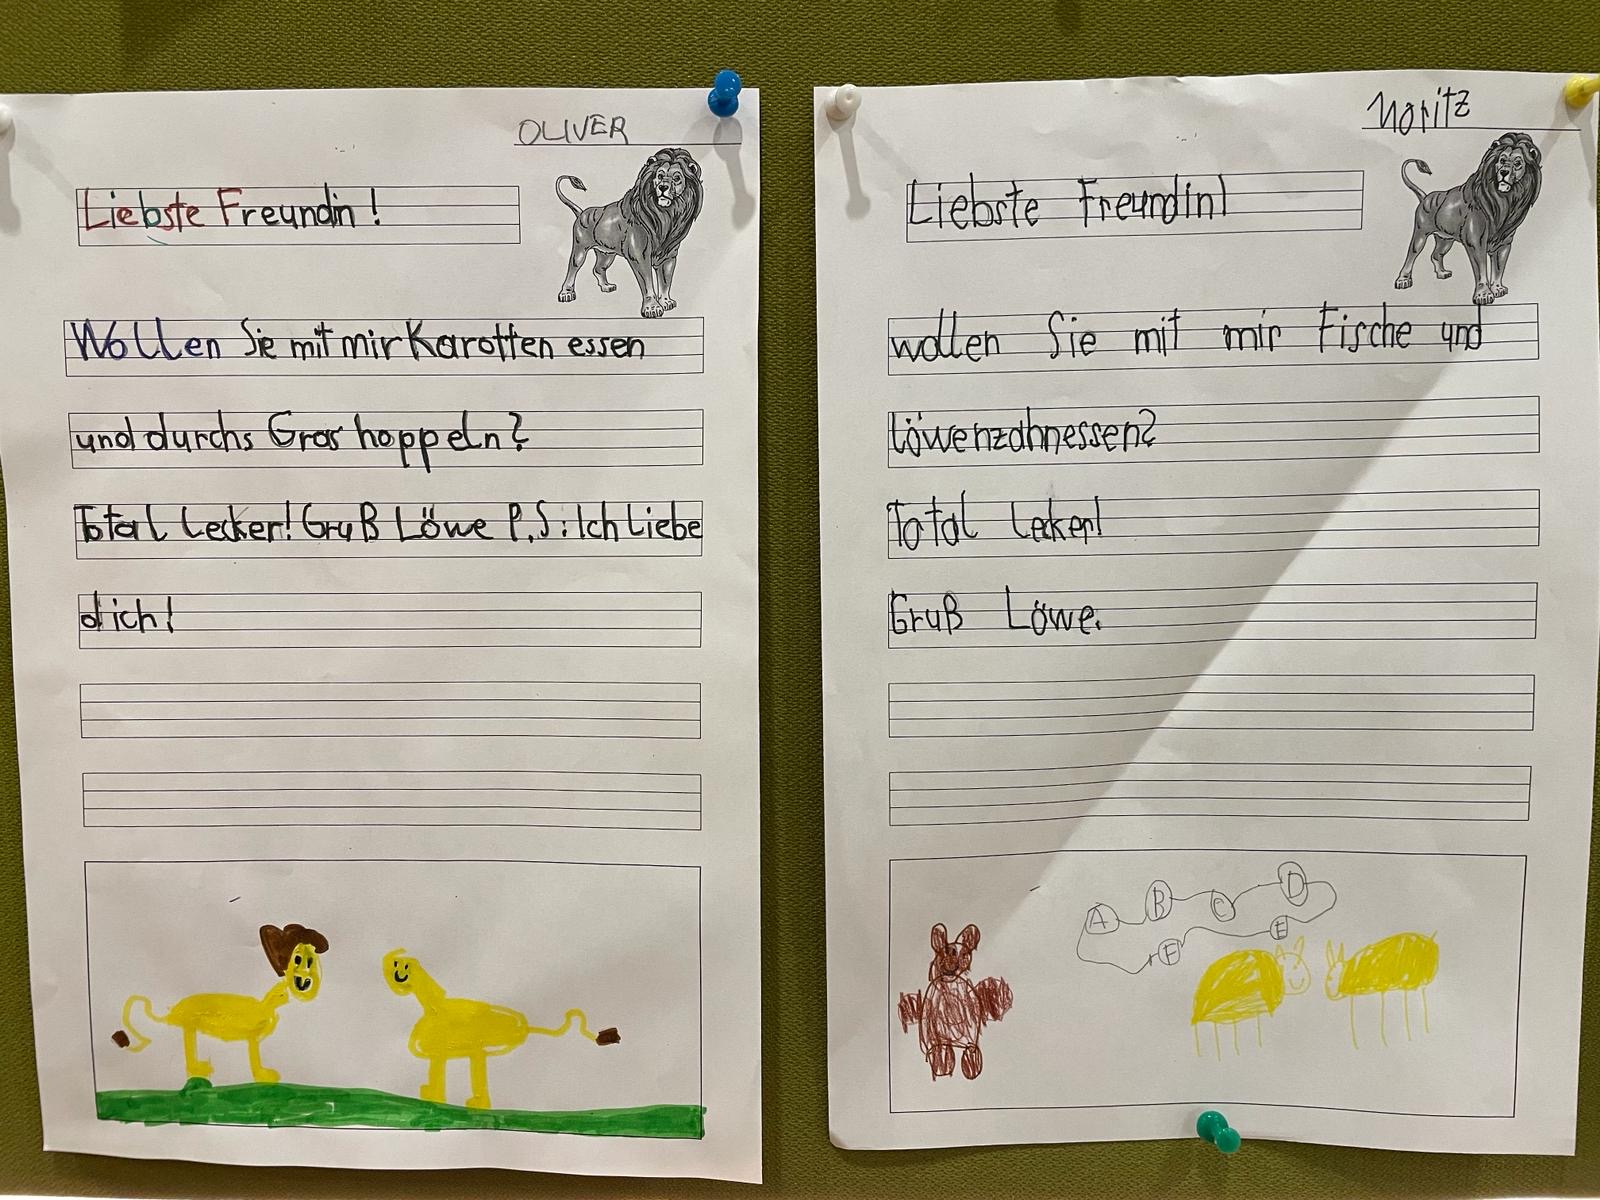 OLIVER
Liebste Freundin!
Wollen Sie mit mir Karotten essen
und durchs Gras hoppeln?
Total Lecker! Gruß Löwe P.S: Ich Liebe
dich!
Moritz
Liebste Freundin!
wollen Sie mit mir Fische und
löwenzahnessen?
Total Lecker!
Gruß Löwe.
A B C D
F E